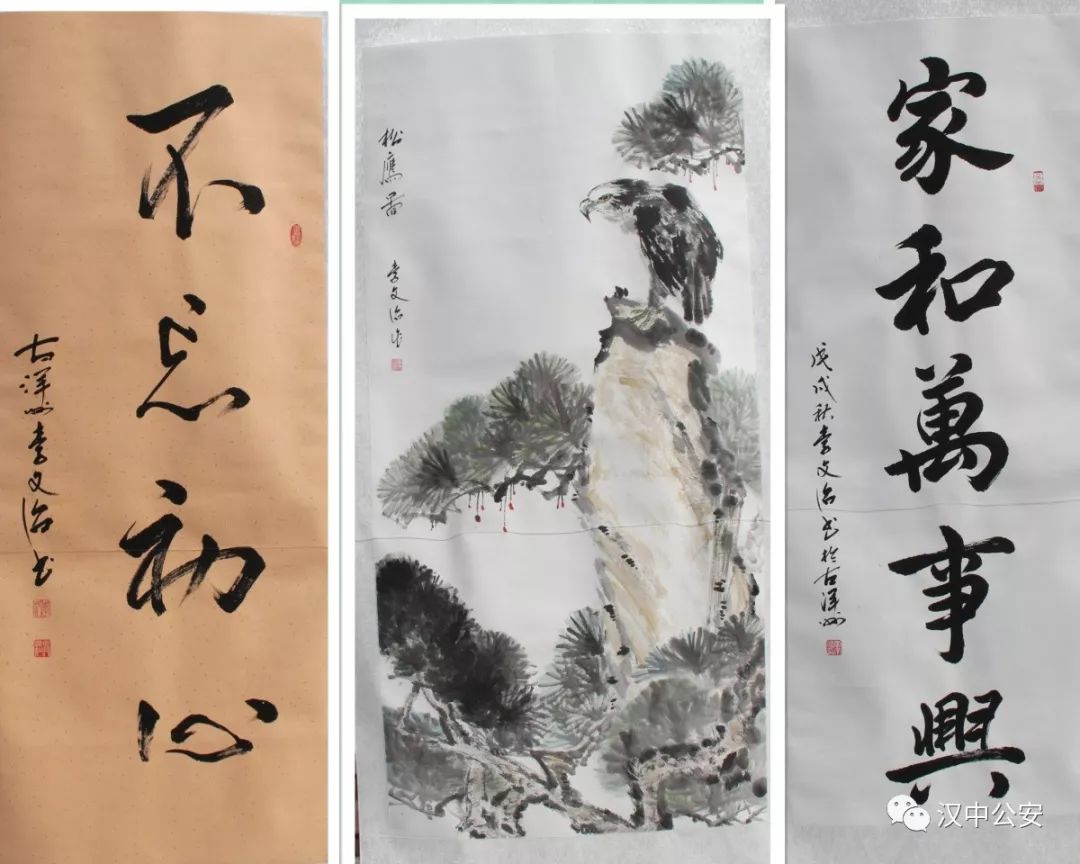 不忘初心
古洋州李文治书
松鹰图
李文治作
家和萬事興
戊戌秋李文治书於古洋州
汉中公安